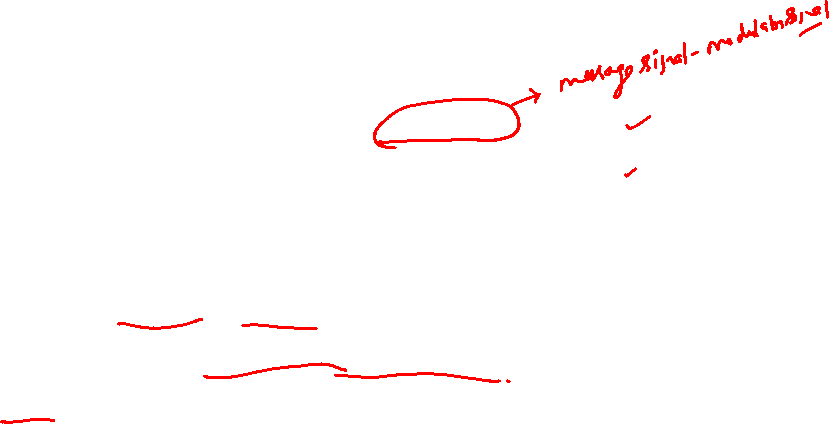 message signal - modulating signal